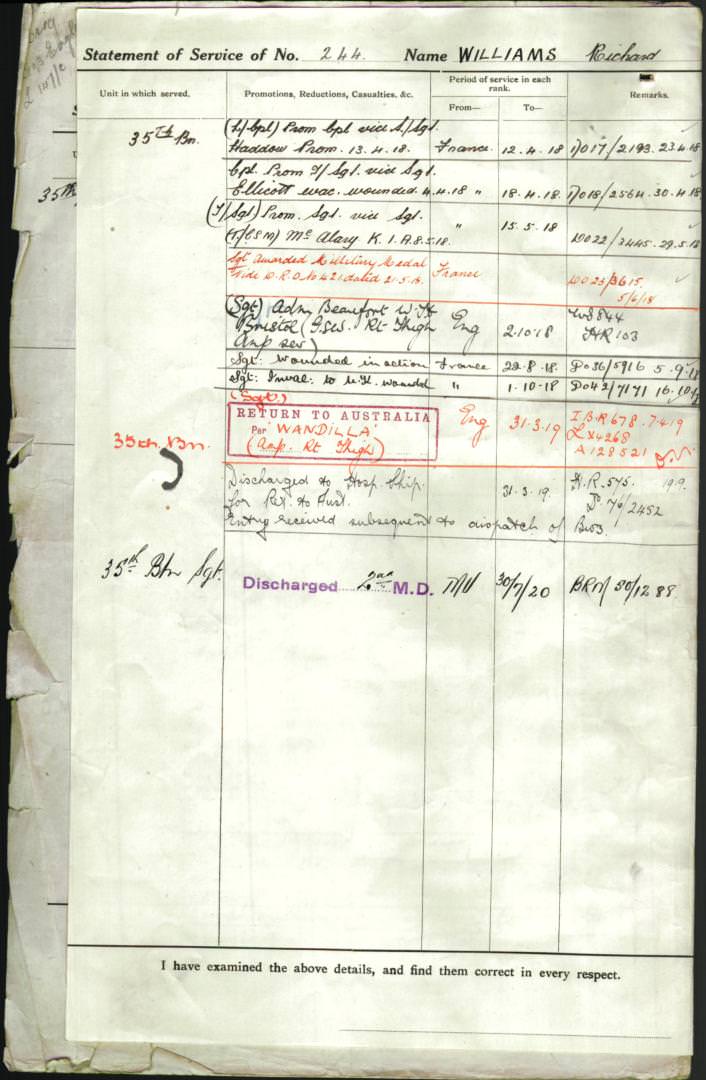 Statement of Service of No. 244. Name WILLIAMS Richard
Unit in which served.
Promotions, Reductions, Casualties, &c.
Period of service in each rank.
From—
To—
Remarks.
35th Bn. (L/Cpl) Prom Cpl vice A/Sgt.
Haddow Prom. 13.4.18. France. 12.4.18 DO17/2193. 23.4.18
Cpl. Prom T/Sgt. vice Sgt.
Ellicott evac. wounded 4.4.18 " 18.4.18. DO18/2564. 30.4.18
(T/Sgt) Prom. Sgt. vice Sgt.
(T/CSM) Mc Alary K.I.A. 8.5.18. " 15.5.18 DO22/3445. 29.5.18
Sgt Awarded Military Medal France
Vide D.R.O. No 421 dated 21.5.18. DO23/3615.
5/6/18
(Sgt) Adm Beaufort W. H
Bristol (GSW. Rt Thigh Eng 2.10.18 W3844
Amp sev) HR 103
Sgt: Wounded in action France 22.8.18. DO36/5916 5.9.18
Sgt: Inval: to U.K. wounded " 1.10.18 DO42/7171 16.10.18
(Sgt)
RETURN TO AUSTRALIA
Per 'WANDILLA'
(Amp. Rt Thigh)
35th. Bn. Eng 31.3.19 I.B.R 678. 7.4.19
LX4268
A128521
Discharged to Hosp. Ship. H.R. 575. 19.9.
for Ret. to Aust. 31.3.19. Do 76/2452
Entry received subsequent to dispatch of B103.
35th Btn Sgt. Discharged 2nd M.D. MU 30/7/20 BRM 30/1288
I have examined the above details, and find them correct in every respect.
35th